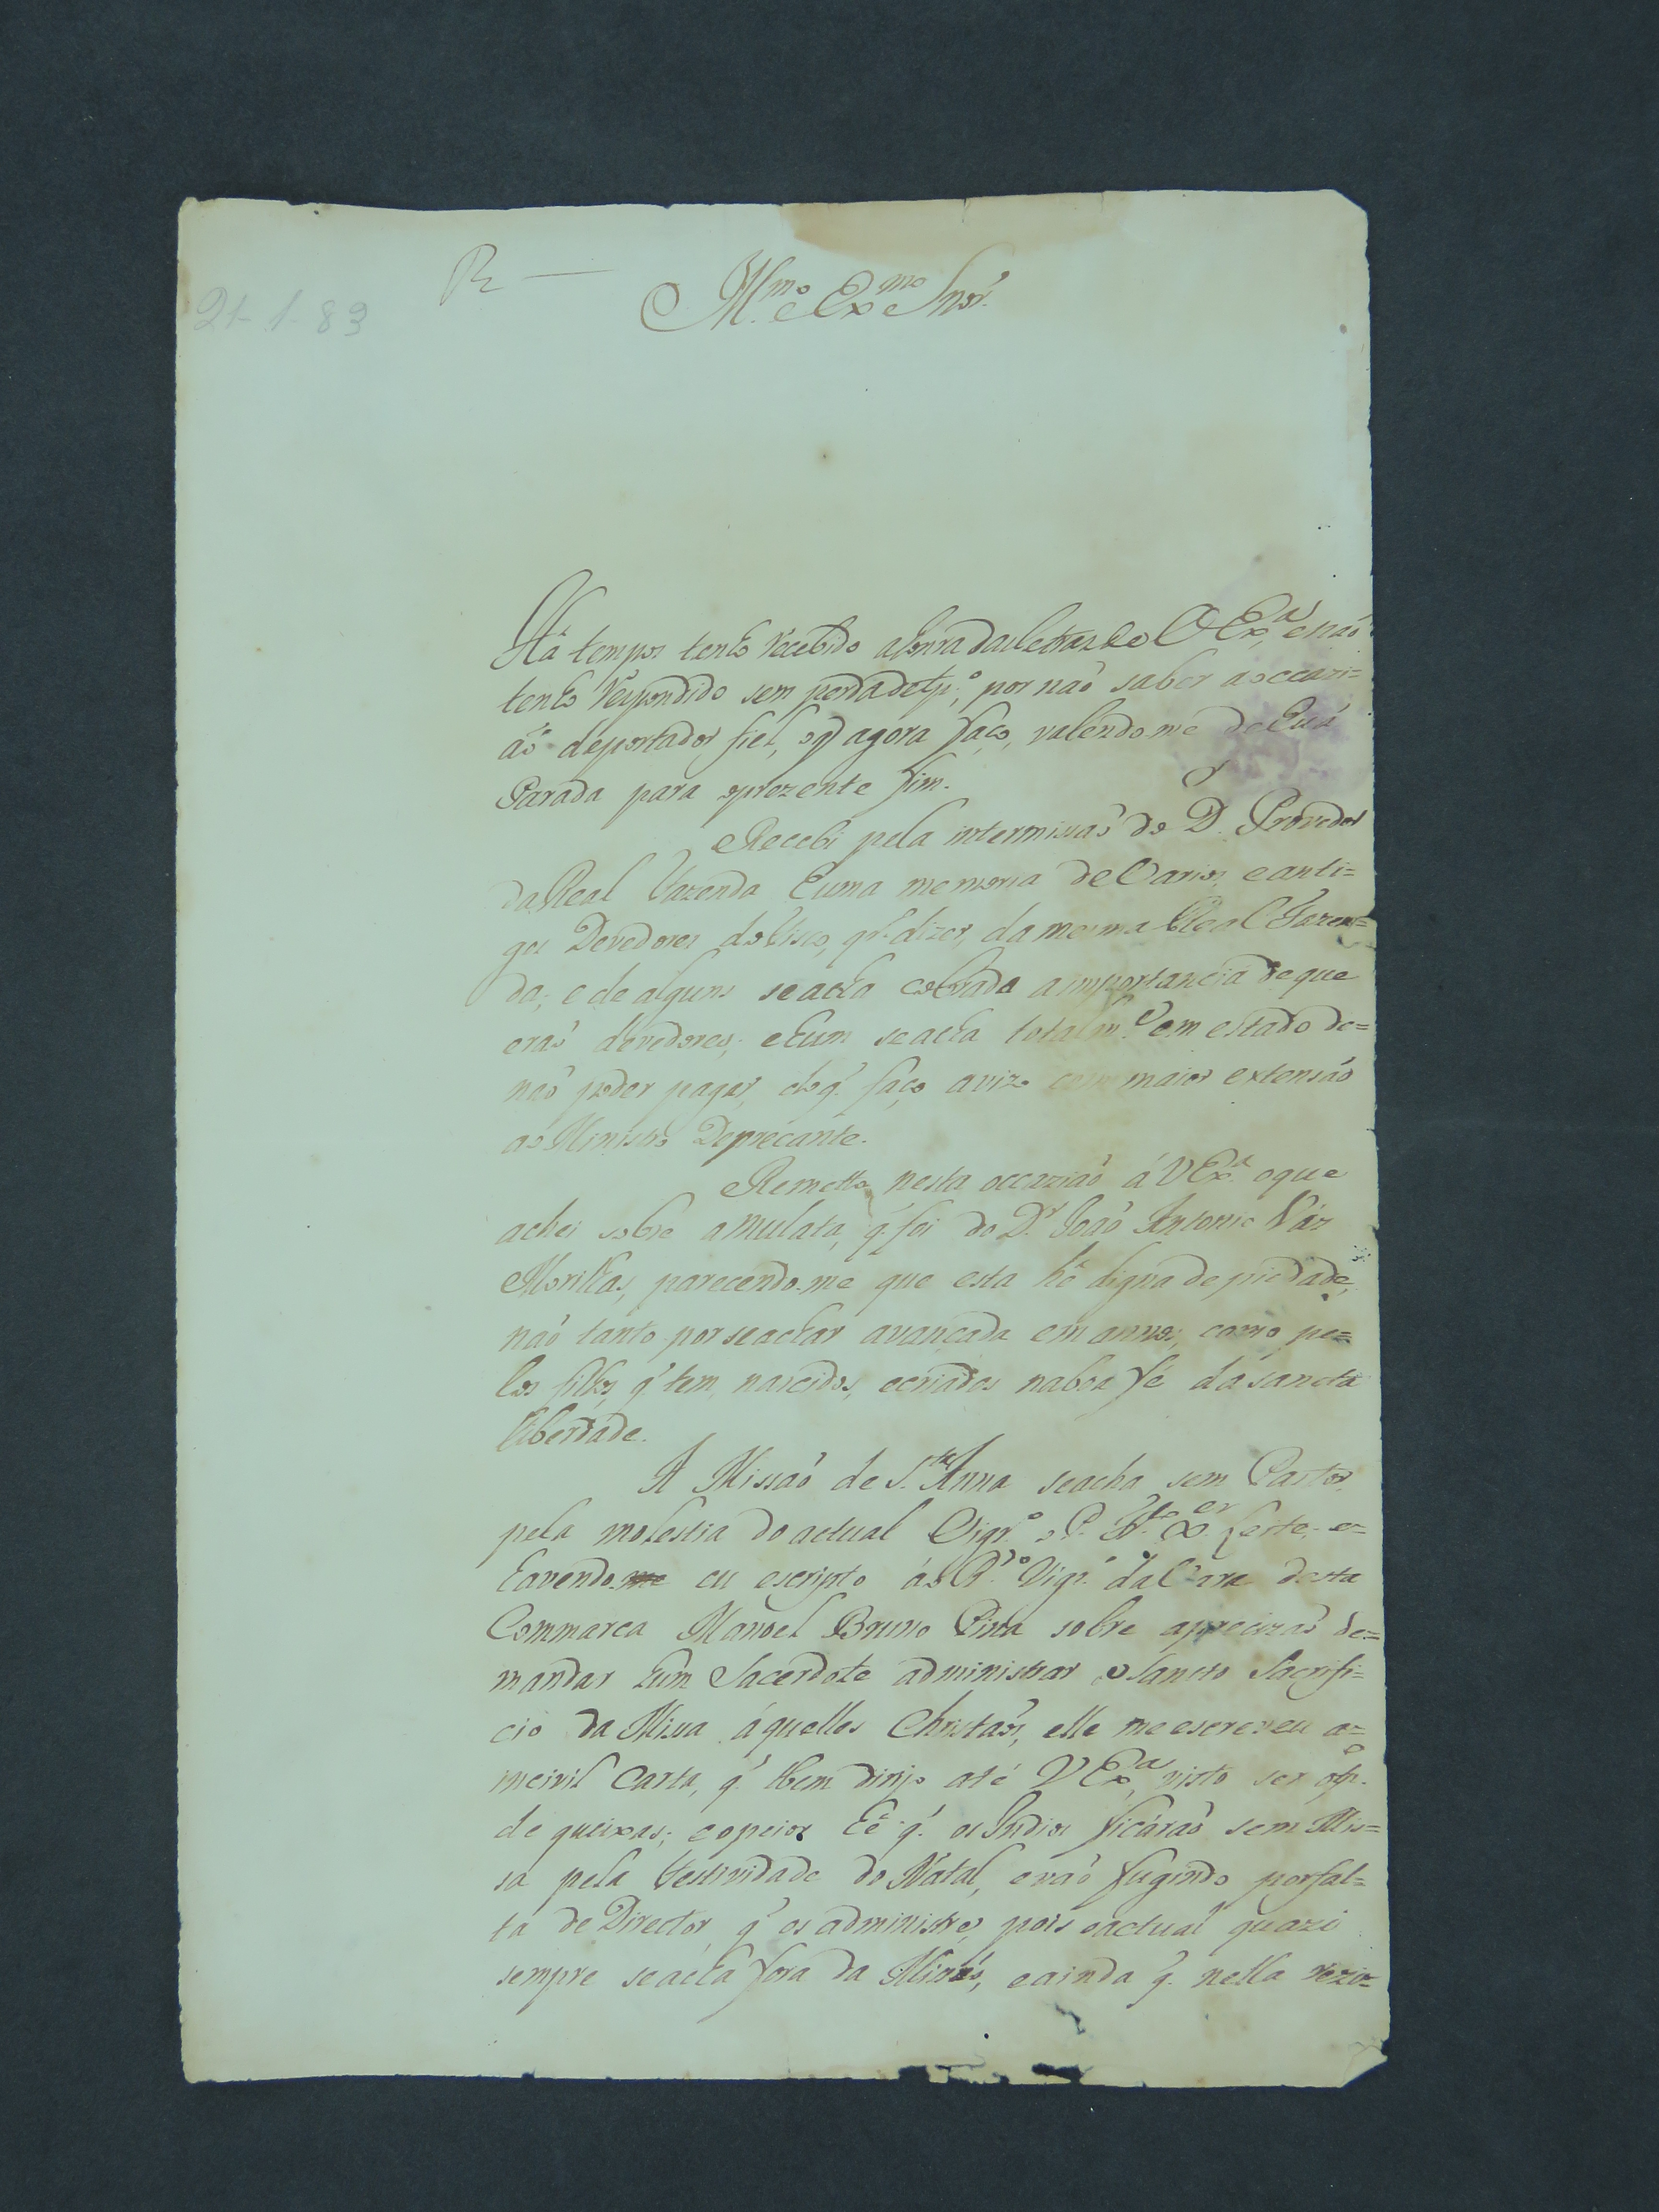 R
21-1-83
Ill.mo e Ex.mo Snor.
Hà tempos tenho recebido ahonra dasletras de V Ex.a, enaõ
tenho respondido sem perda detp.o, por naõ saber aoccazi=
aõ deportador fiel, oq̃ agora faço, valendome de hũa
Parada para oprezente fim.
Recebi pela intermissaõ do D.r Provedor
daReal Fazenda huma memoria de Varios, e anti=
gos Devedores doFisco, q.r dizer, da mesma Real Fazen=
da; e de alguns seacha cobrada aimportancia deque
eraõ devedores; ehum seacha totalm.e em estado de=
naõ poder pagar, doq̃ faço avizo com maior extensaõ
ao Ministro Deprecante.
Remetto nesta occaziaõ á V Ex.a oque
achei sobre aMulata, q̃ foi do D.r Joaõ Antonio Váz
Morilhas, parecendo-me que esta hé digna de piedade,
naõ tanto por seachar avançada em annos, como pe=
los filhos, q̃ tem, nascidos, ecriados naboa fé da sancta
liberdade.
A Missaõ de S.ta Anna seacha sem Pastor,
pela molestia do actual Vigr.o o P. Leite; e=
havendo eu escripto áo R.do Vigr.o da Vara desta
Commarca Manoel Bruno Pina sobre aprecizaõ de=
mandar hum Sacerdote administrar o Sancto Sacrifi=
cio da Missa áquelles Christaõs, elle me escreveu a=
incivil Carta, q̃ tbem dirijo até V Ex.a, visto ser otp.o
de queixas; eopeior hé q̃ os Indios ficáraõ sem Mis=
sa pela Festividade do Natal, evaõ fugindo porfal=
ta de Director, q̃ os administre, pois oactual quazi
sempre seacha fora da Missaõ, eainda q̃ nella rezi=